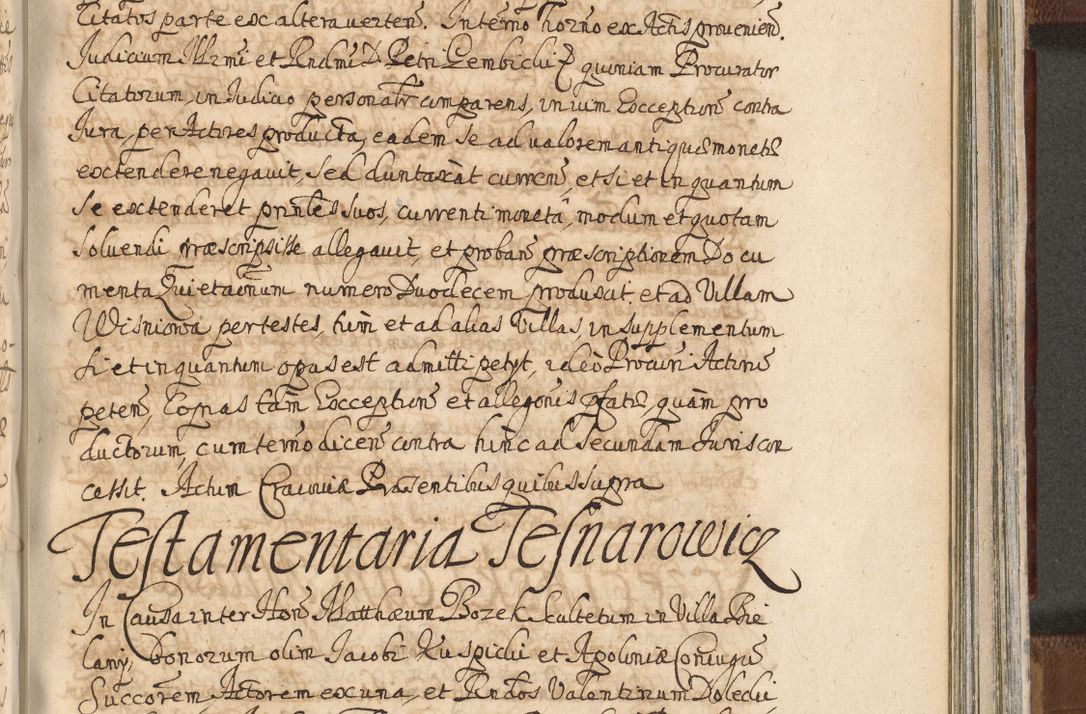 Citatos parte ex altera verten. In termo hor̃no ex Actis provenien.
Judicium Illr̃mi et Rndmi D Petri Gembicki quoniam Procurator
Citatorum, in Judicio personalr̃ comparens, in vim Exception̄ contra
Jura, per Actores producta, eadem se ad valorem antiquæ monetæ
extendere negavit, sed duntaxat curren̄, et si et in quantum
se extenderet prin̄les suos, currenti moneta, modum et quotam
solvendi præscripsisse allegavit, et proban̄ præscriptionem Docu
menta Quietaōnum numero Duodecem produxit, et ad Villam
Wisniowa per testes, tum et ad alias Villas, in supplementum
si et in quantum opus est admitti petyt, ideo Procuri Actoris
peten̄, Copias tam Exception̄ et allegonis pfatæ quam pro
ductorum, cum termo dicen̄ contra hinc ad secundam Juris con
cessit. Actum Cracoviæ Præsentibus quibus supra
Testamentaria Tesnarowicz
In Causa inter Hon̄ Matthæum Bozek scultetum in Villa Bie
lany, bonorum olim Jacobi Kuspicki et Apoloniæ Coniugū
Succorem Actorem ex una, et Rndos Valentinum